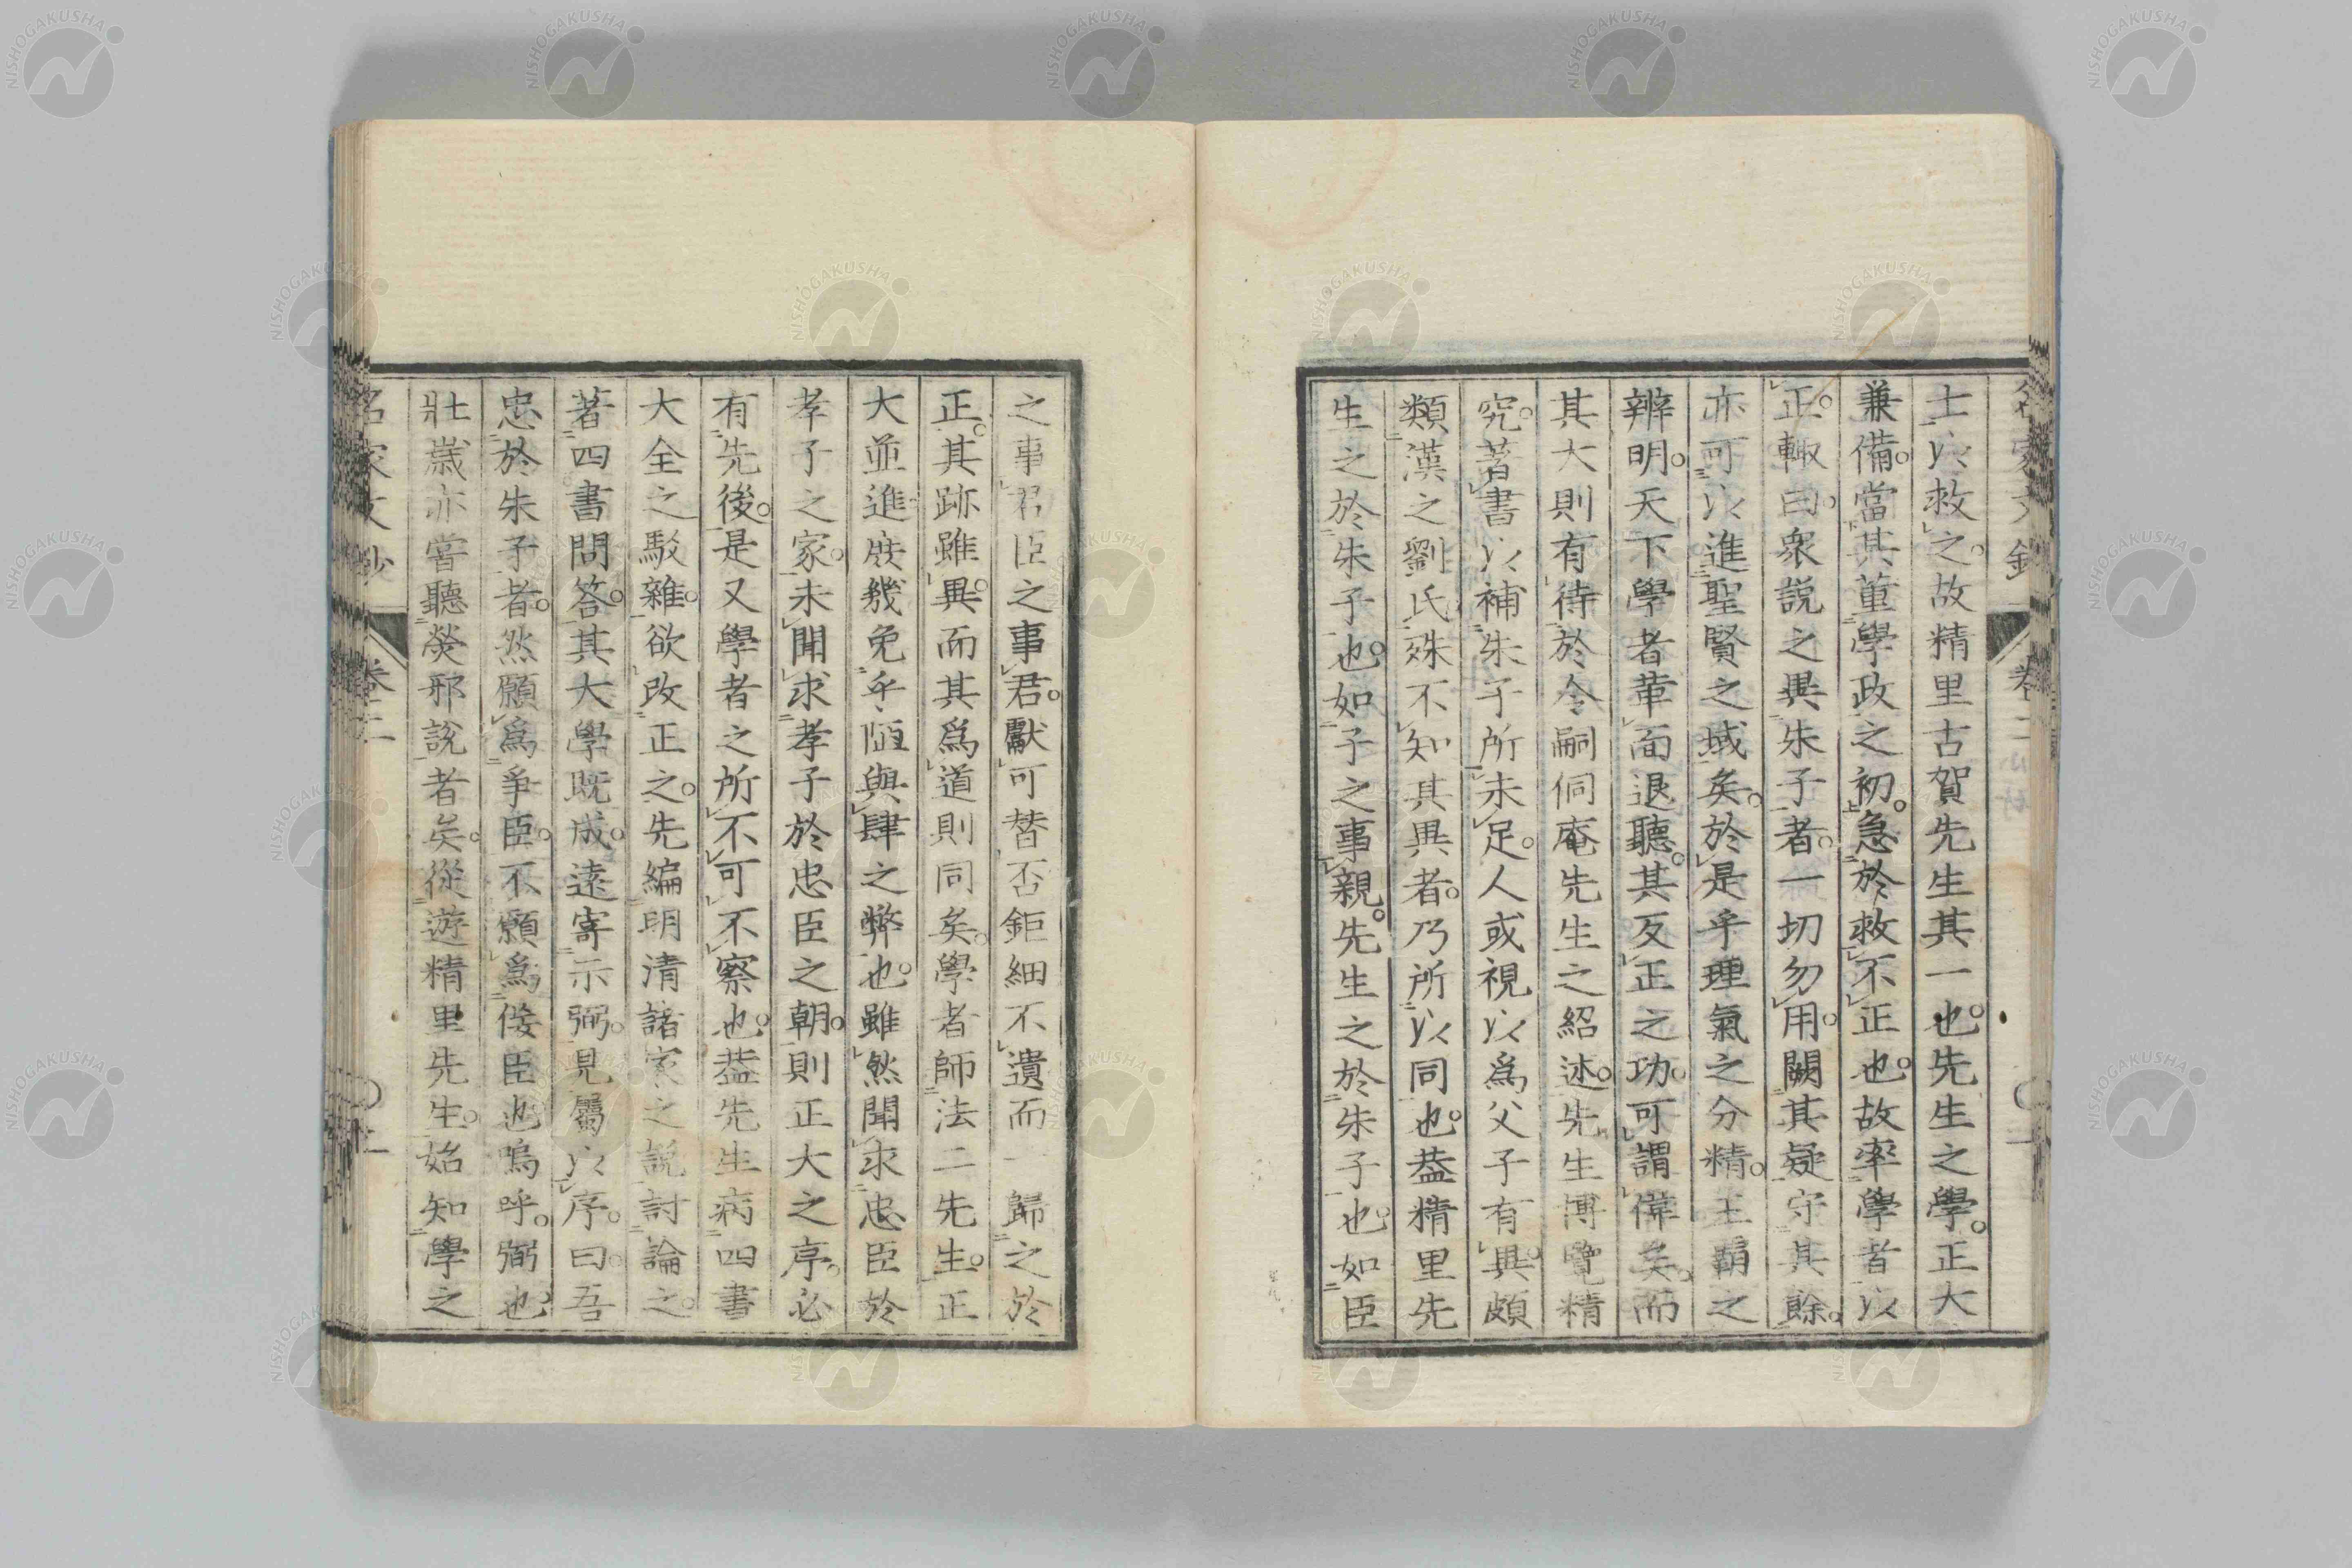 士以救之。故精里古賀先生其一也。先生之學。正大
兼備。當其董學政之初。急於救不正也。故率學者以
正。輙曰。衆説之異朱子者。一切勿用。闕其疑。守其餘。
亦可以進聖賢之域矣。於是乎理氣之分精。王霸之
辨明。天下學者革面退聽。其反正之功。可謂偉矣。而
其大則有待於令嗣侗庵先生之紹述。先生博覽精
究。著書以補朱子所未足。人或視以爲父子有異。頗
類漢之劉氏。殊不知其異者。乃所以同也。蓋精里先
生之於朱子也。如子之事親。先生之於朱子也。如臣
之事君。臣之事君。獻可替否。鉅細不遺。而一歸之於
正。其跡雖異。而其爲道則同矣。學者師法二先生。正
大並進。庶幾免乎陋與肆之弊也。雖然聞求忠臣於
孝子之家。未聞求孝子於忠臣之朝。則正大之序。必
有先後。是又學者之所不可不察也。蓋先生病四書
大全之駁雜。欲改正之。先編明清諸家之説討論之。
著四書問答。其大學既成。遠寄示弼。見屬以序。曰。吾
忠於朱子者。然願爲爭臣。不願爲佞臣也。嗚呼。弼也。
壯歳亦嘗聽熒邪説者矣。從遊精里先生。始知學之
名家文鈔
卷二
NISHOGAKUSHA